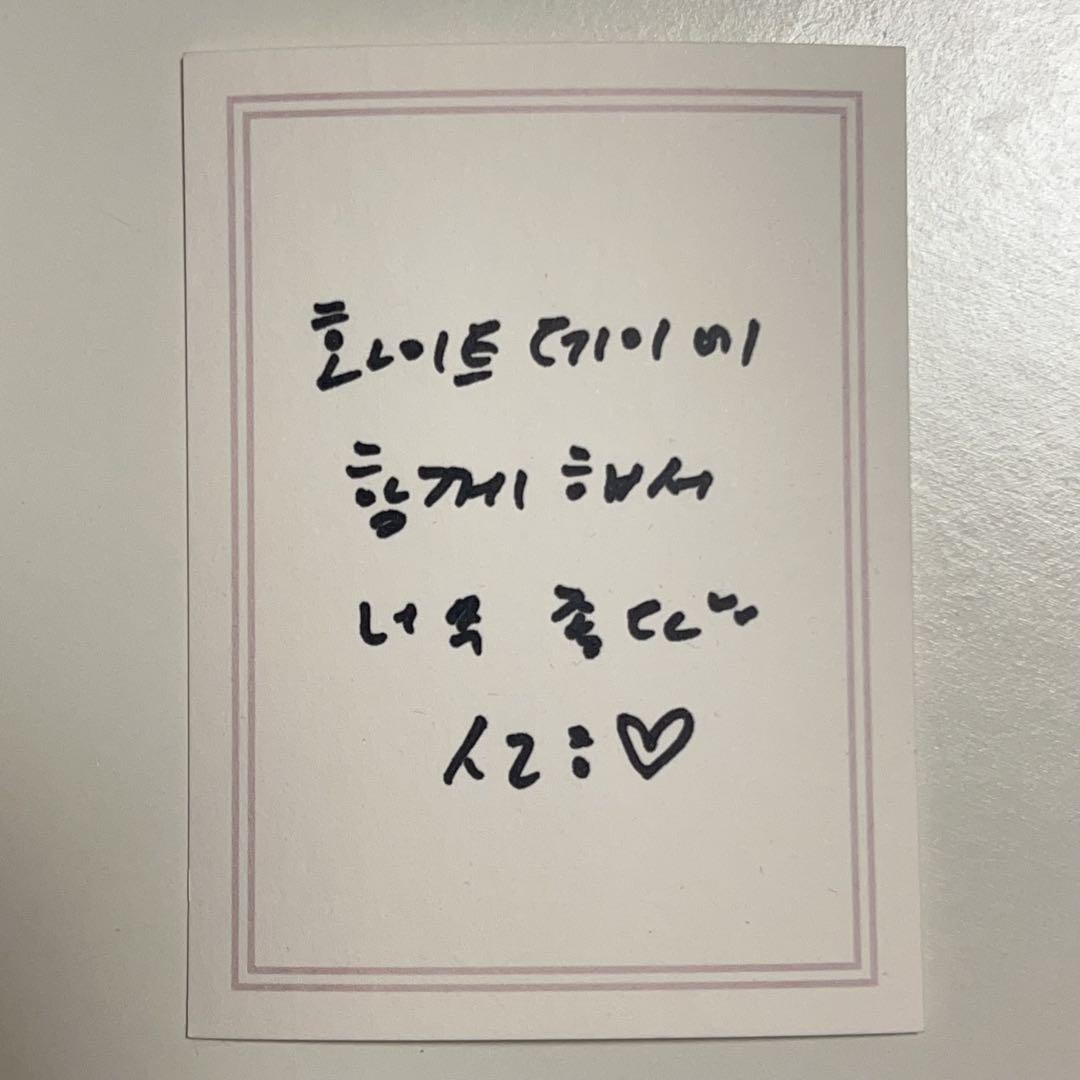 화이트 데이에
함께 해서
너무 좋다^^
ㅅㄹㅎ♡